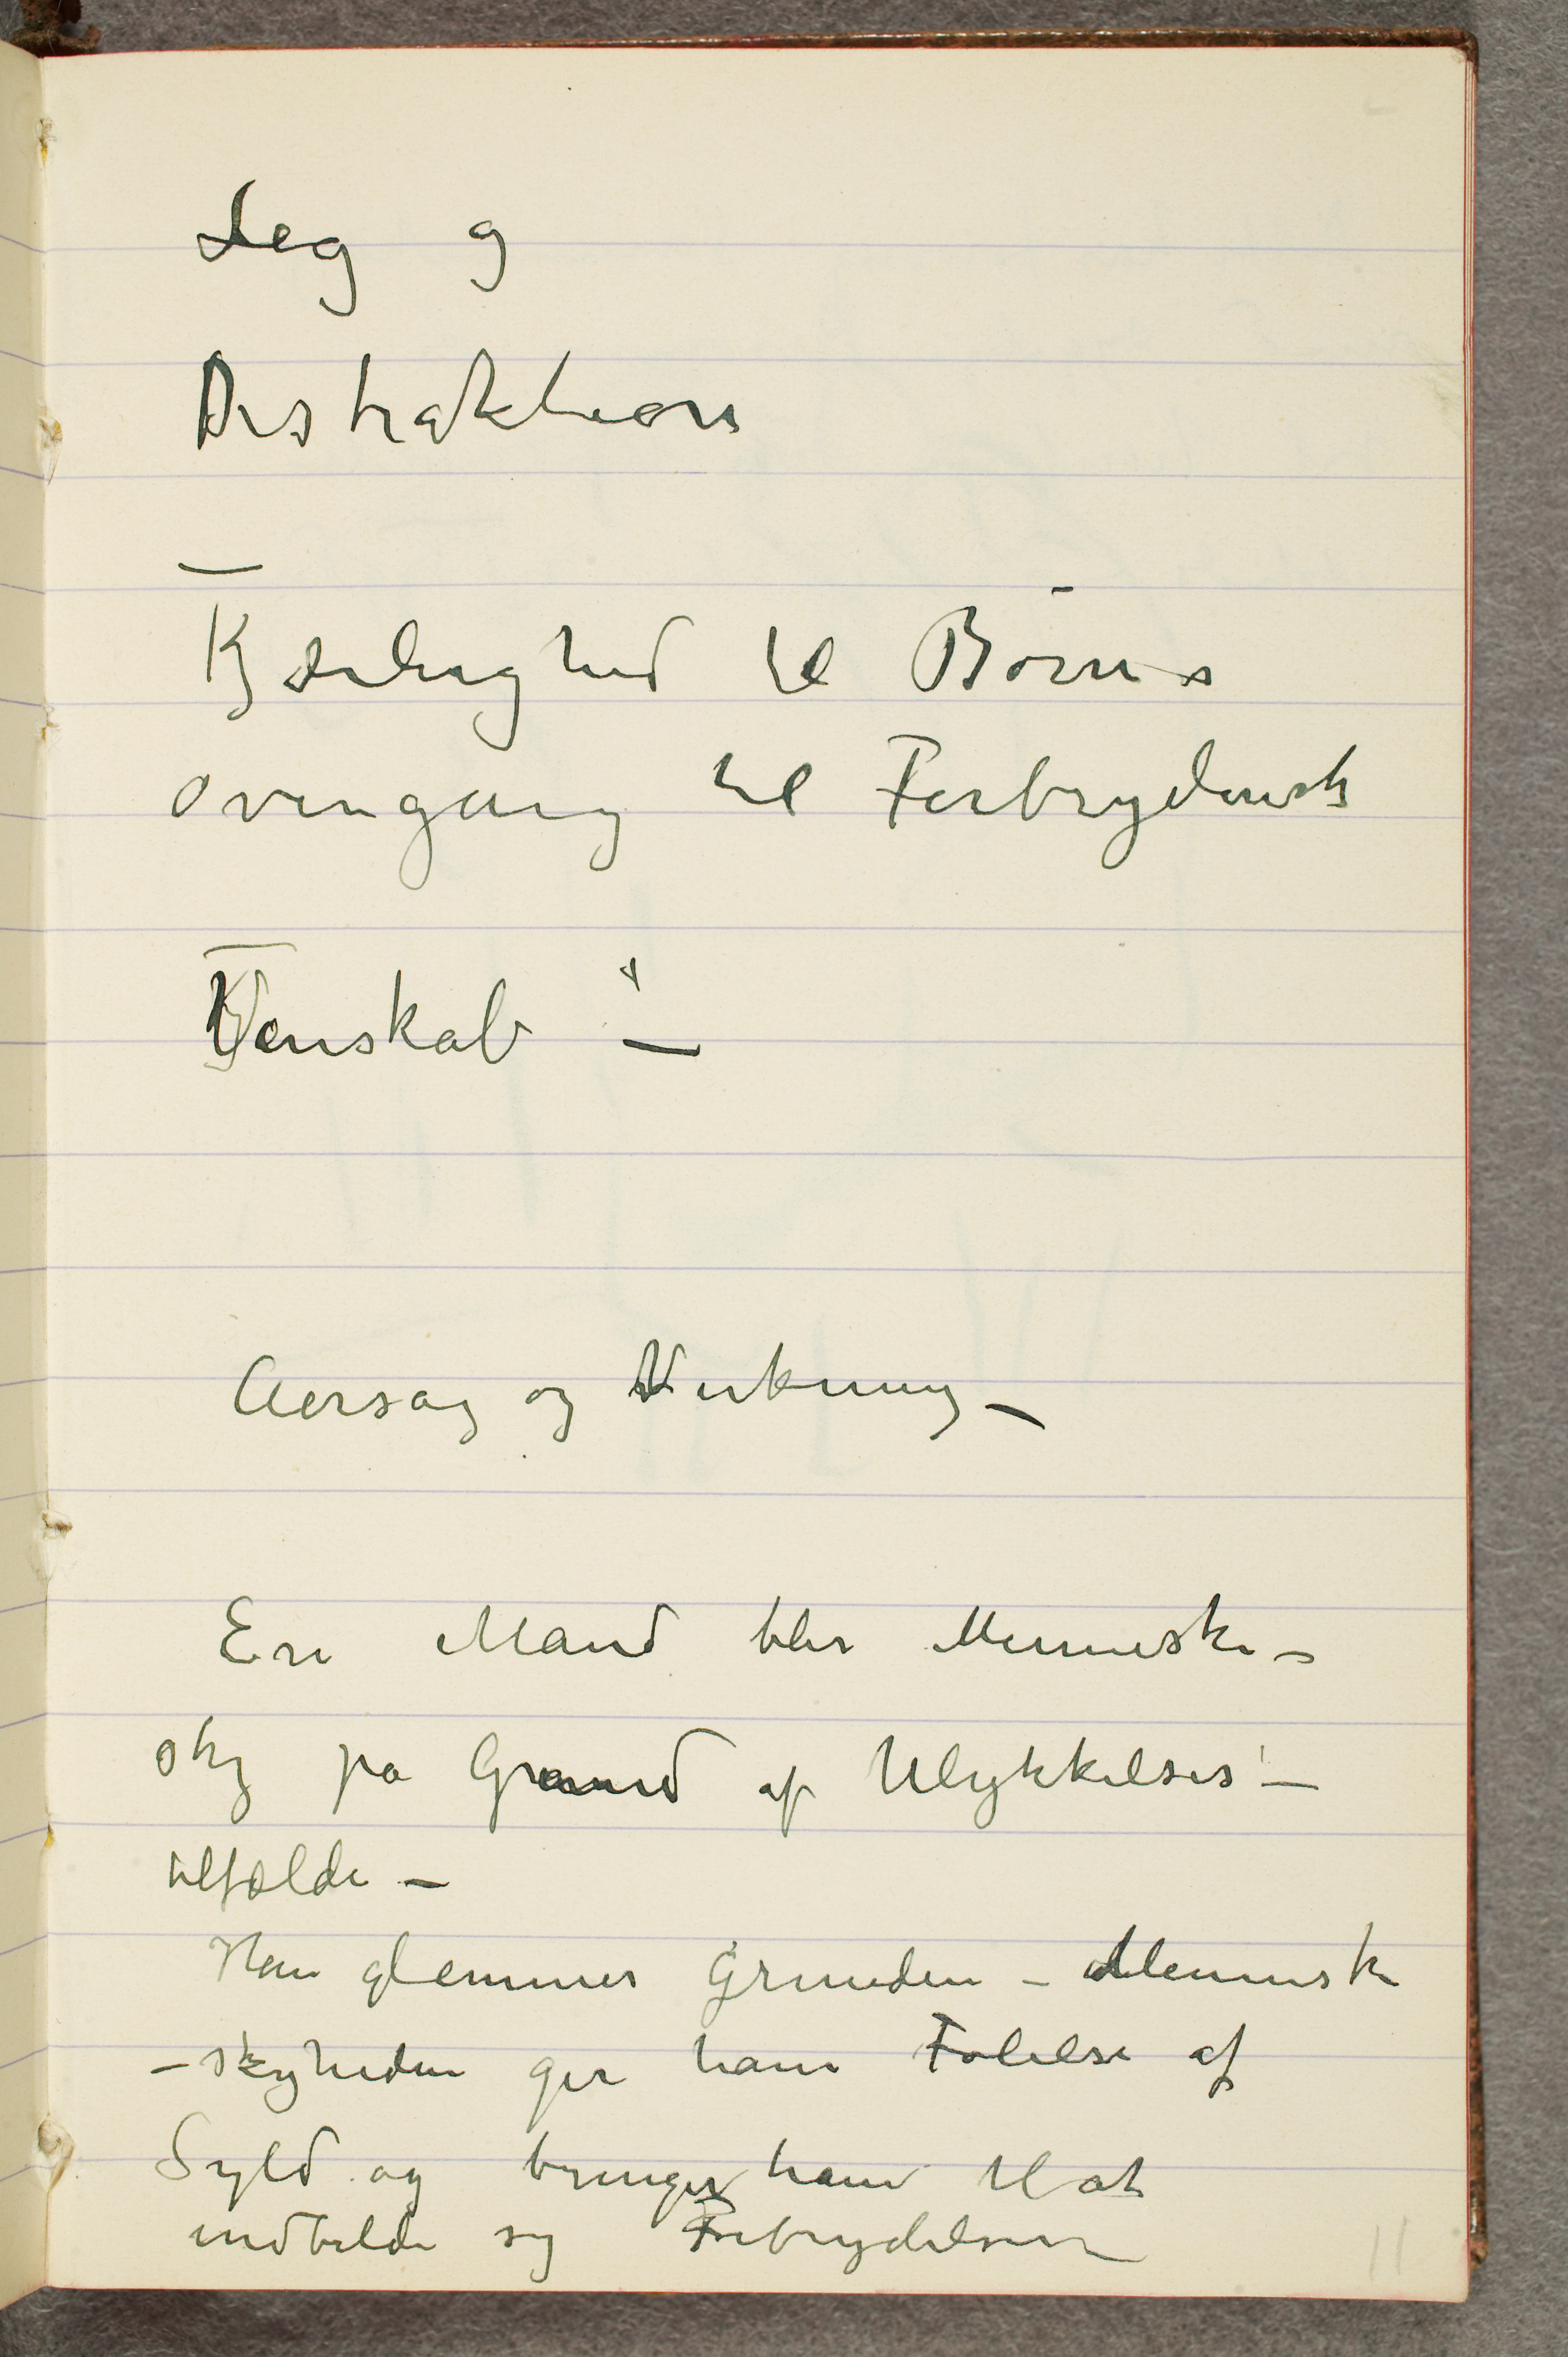 Leg g
Distraktion
—
Kjærlighed til Børn –
overgang til Forbrydersk
—
Venskab –
Aorsag og Virkning –
En Mand blir Menneske –
sky på Grund af Ulykkelses –
tilfælde –
Han glemmer Grunden – Menneske
– skyheden gir ham Følelse af
Syld og bringer ham til at
indbilde sig Forbrydelsen
11